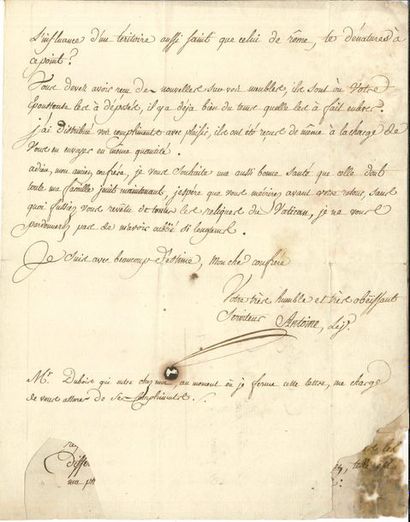 l'influence d'un teritoire aussi saint que celui de rôme, te dénatures à
ce point?
Vous devez avoir reçu de nouvelles sur vos meubles, ils sont où Votre
épousseuse les à déposés, il y a deja bien du tems quelle les à fait enlever.
j'ai distribué vos complimens avec plaisir, ils ont été reçus de même à la charge de
Vous en envoyer en même quantité.
adieu, mon ami, confrère, je vous souhaite une aussi bonne santé que celle dont
toute ma famille jouit maintenant, j'espère que vous m'écrirez avant votre retour, sans
quoi fussiez vous revêtu de toutes les reliques du Vatican, je ne vous
pardonnerez pas de m'avoir oublié si longtems.
Je suis avec beaucoup d'estime, Mon cher confrère
Votre très humble et très obéissant
Serviteur Antoine,
Mr. Dubois qui entre chez moi, au moment où je ferme cette lettre, me charge
de vous assurer de ses complimens.